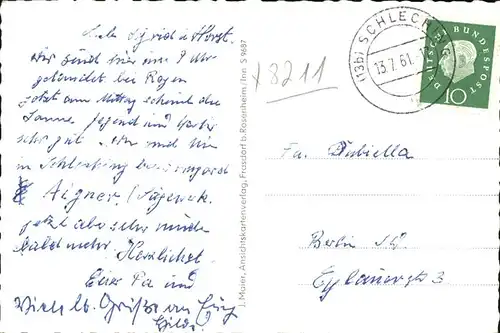 Liebe Sigrid u. Horst.
Wir sind hier um 9 Uhr
gelandet bei Regen
jetzt am Mittag scheint die
Sonne. Gegend und
sehr gut. Wir sind hier
in Schleching bei
Aigner. (Sägewerk.
jetzt aber sehr müde
bald mehr. Herzlichst
Eure
Viele lb. Grüße an Euch
Hilde
J. Maier, Ansichtskartenverlag, Frasdorf b. Rosenheim/Inn S 9687
+8211
(13b) SCHLECH
13.7.61.
DEUTSCHE BUNDESPOST
10
Fa. Dubiella
Berlin SW.
Eylauerstr 3